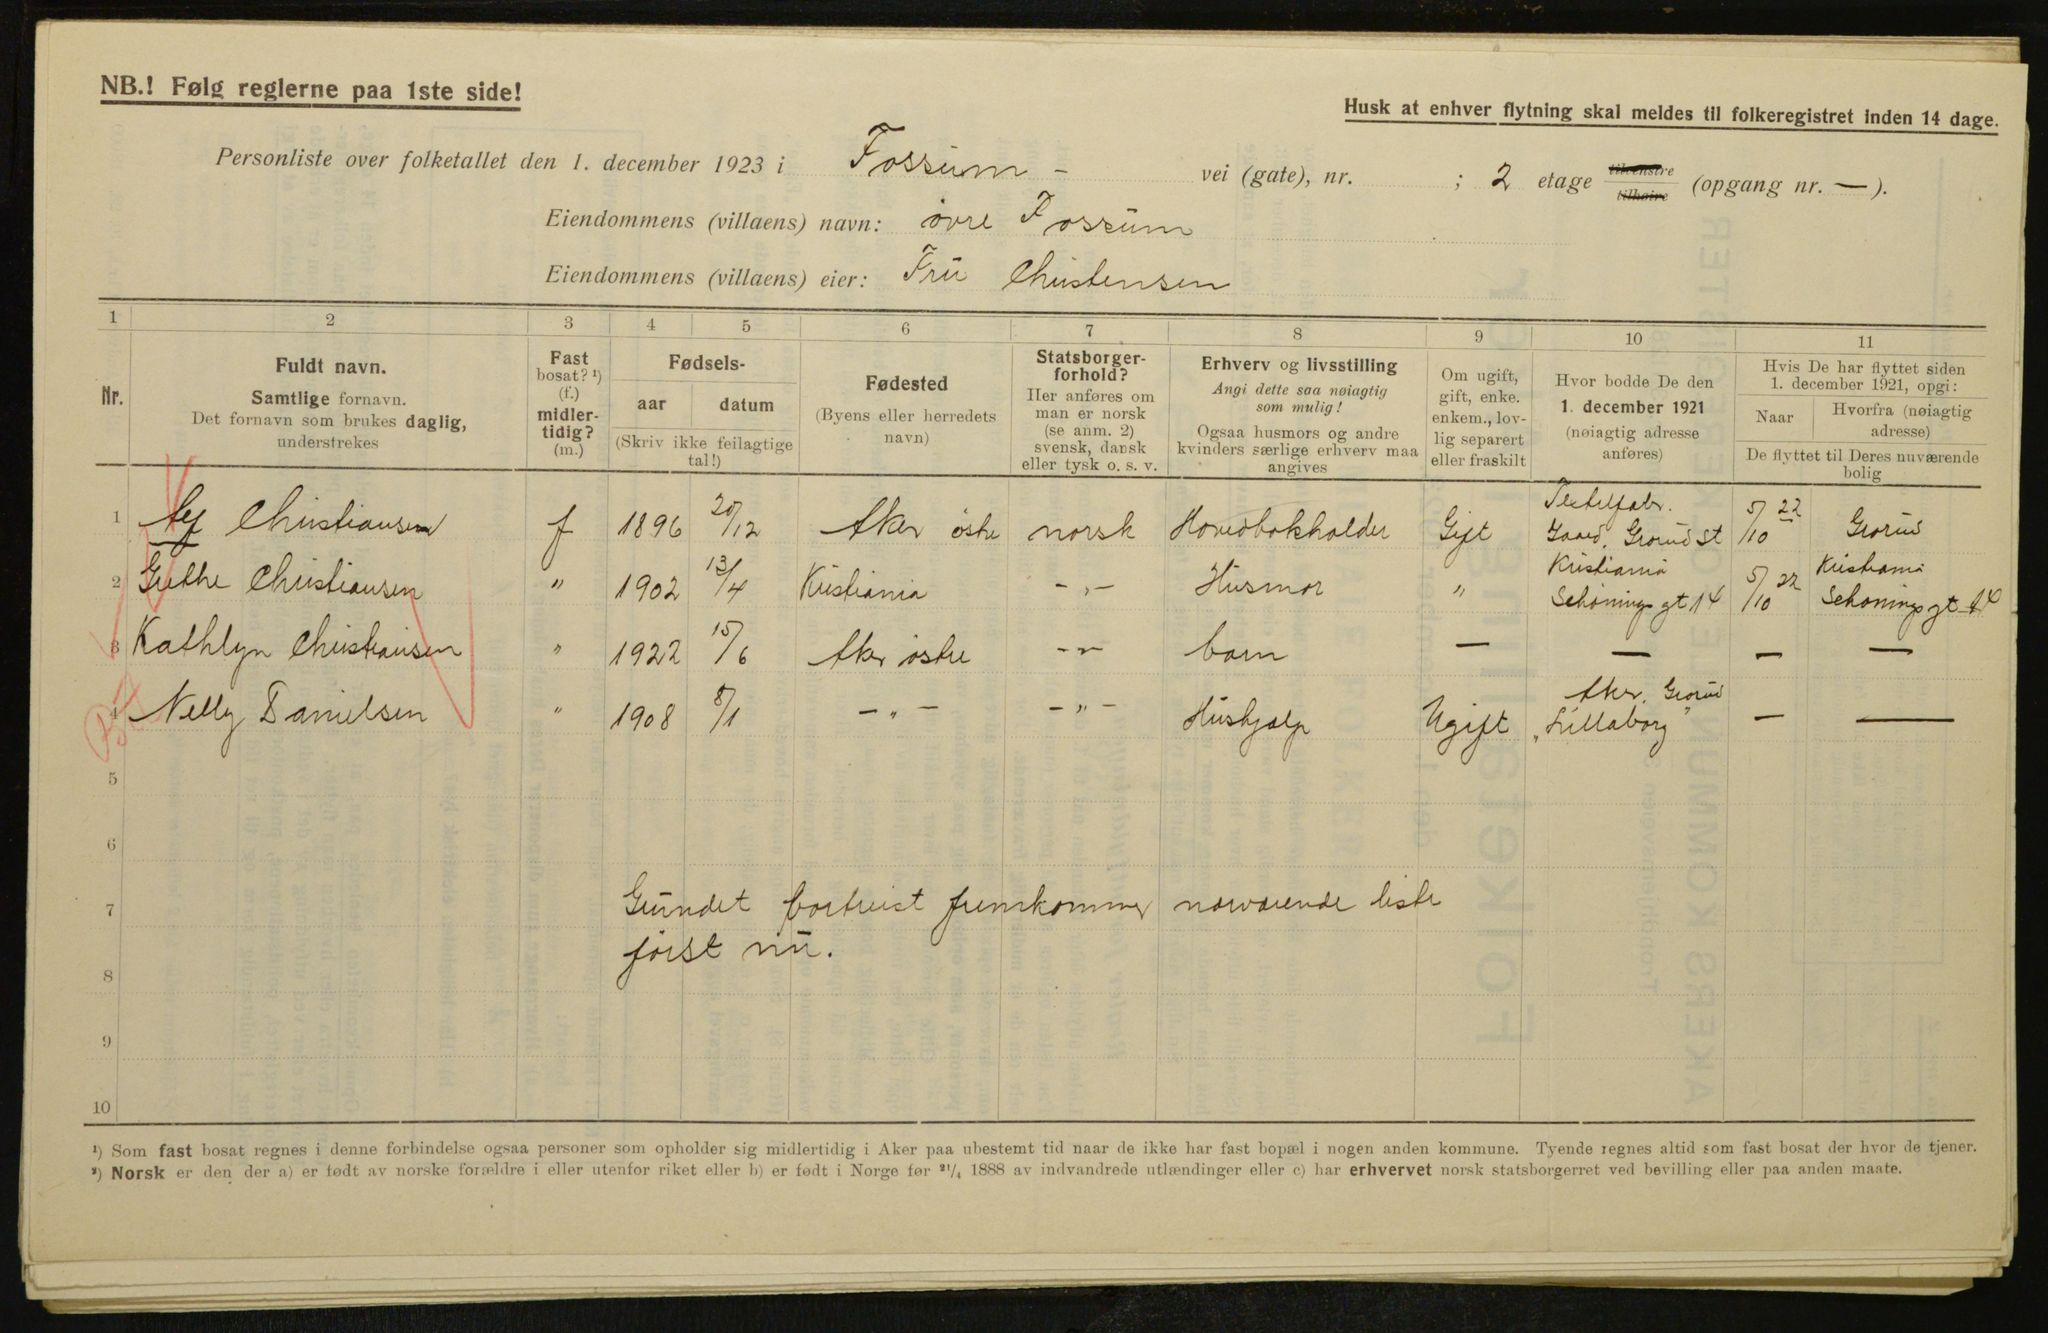 NB.! Følg reglerne paa 1ste side!
Husk at enhver flytning skal meldes til folkeregistret inden 14 dage.
Personliste over folketallet den 1. december 1923 i Fossum - vei (gate), nr. ; 2 etage tilvenstre tilhøire (opgang nr. — ).
Eiendommens (villaens) navn: øvre Fossum
Eiendommens (villaens) eier: Fru Christensen
1 2 3 4 5 6 7 8 9 10 11
Nr.
Fuldt navn.
Samtlige fornavn.
Det fornavn som brukes daglig,
understrekes
Fast
bosat? ¹)
(f.)
midler-
tidig?
(m.)
Fødsels-
aar datum
(Skriv ikke feilagtige
tal!)
Fødested
(Byens eller herredets
navn)
Statsborger-
forhold?
Her anføres om
man er norsk
(se anm. 2)
svensk, dansk
eller tysk o. s. v.
Erhverv og livsstilling
Angi dette saa nøiagtig
som mulig!
Ogsaa husmors og andre
kvinders særlige erhverv maa
angives
Om ugift,
gift, enke.
enkem., lov-
lig separert
eller fraskilt
Hvor bodde De den
1. december 1921
(nøiagtig adresse
anføres)
Hvis De har flyttet siden
1. december 1921, opgi:
Naar Hvorfra (nøiagtig
adresse)
De flyttet til Deres nuværende
bolig
1 Christiansen f 1896 20/12 Aker østre norsk Hovedbokholder Gift Textilfabr. Gaard, Grorud St 5/10 22 Grorud
2 Grethe Christiansen " 1902 13/4 Kristiania - " - Husmor " Kristiania Schønings gt 14 5/10 22 Kristiania Schønings gt 14
3 Kathlyn Christiansen " 1922 15/6 Aker østre - " - barn — — — —
4 Nelly Danielsen " 1908 8/1 - " - - " - Hushjælp Ugift Aker, Grorud "Lillaborg" — —
5
6
7 Grundet bortreist fremkommer nærværende liste
først nu.
8
9
10
¹) Som fast bosat regnes i denne forbindelse ogsaa personer som opholder sig midlertidig i Aker paa ubestemt tid naar de ikke har fast bopæl i nogen anden kommune. Tyende regnes altid som fast bosat der hvor de tjener.
²) Norsk er den der a) er født av norske forældre i eller utenfor riket eller b) er født i Norge før 21/4 1888 av indvandrede utlændinger eller c) har erhvervet norsk statsborgerret ved bevilling eller paa anden maate.